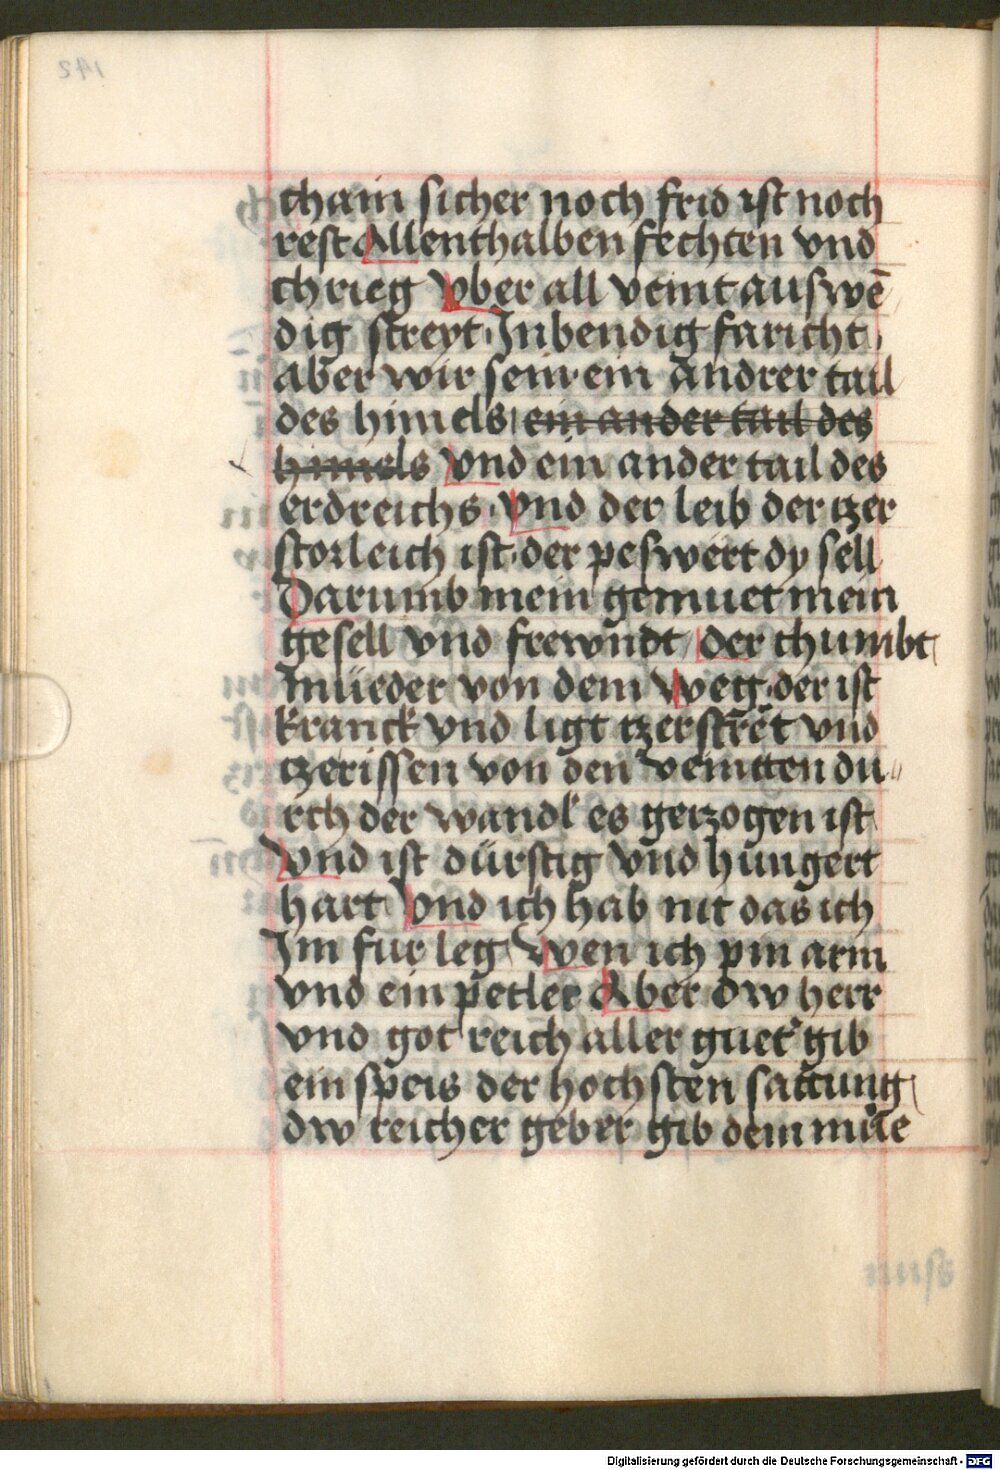 chain sicher noch frid ist noch
rest Allenthalben fechten vnd
chrieg Vber all veint auswē
dig streyt Inbendig faricht
aber wir sein ein andrer tail
des himels ein ander tail des
himels Vnd ein ander tail des
erdreichs Vnd der leib der tzer
storleich ist der peswert dy sell
Darumb mein gemuet mein
gesell vnd frewndt der chumbt
müeder von dem Weg der ist
kranck vnd ligt tzerstrēt vnd
tzerissen von den veintten du
rch der wandl es getzogen ist
Vnd ist dürstig vnd hungert
hart Vnd ich hab nit das ich
Im fur leg Wen ich pin arm
vnd ein petler Aber dw herr
vnd got reich aller guet gib
ein speis der hochsten sattung
dw reicher geber gib dem müe
Digitalisierung gefördert durch die Deutsche Forschungsgemeinschaft - DFG